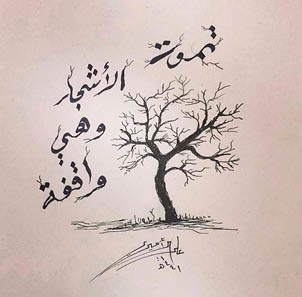 تموت
الأشجار
وهي
واقفة